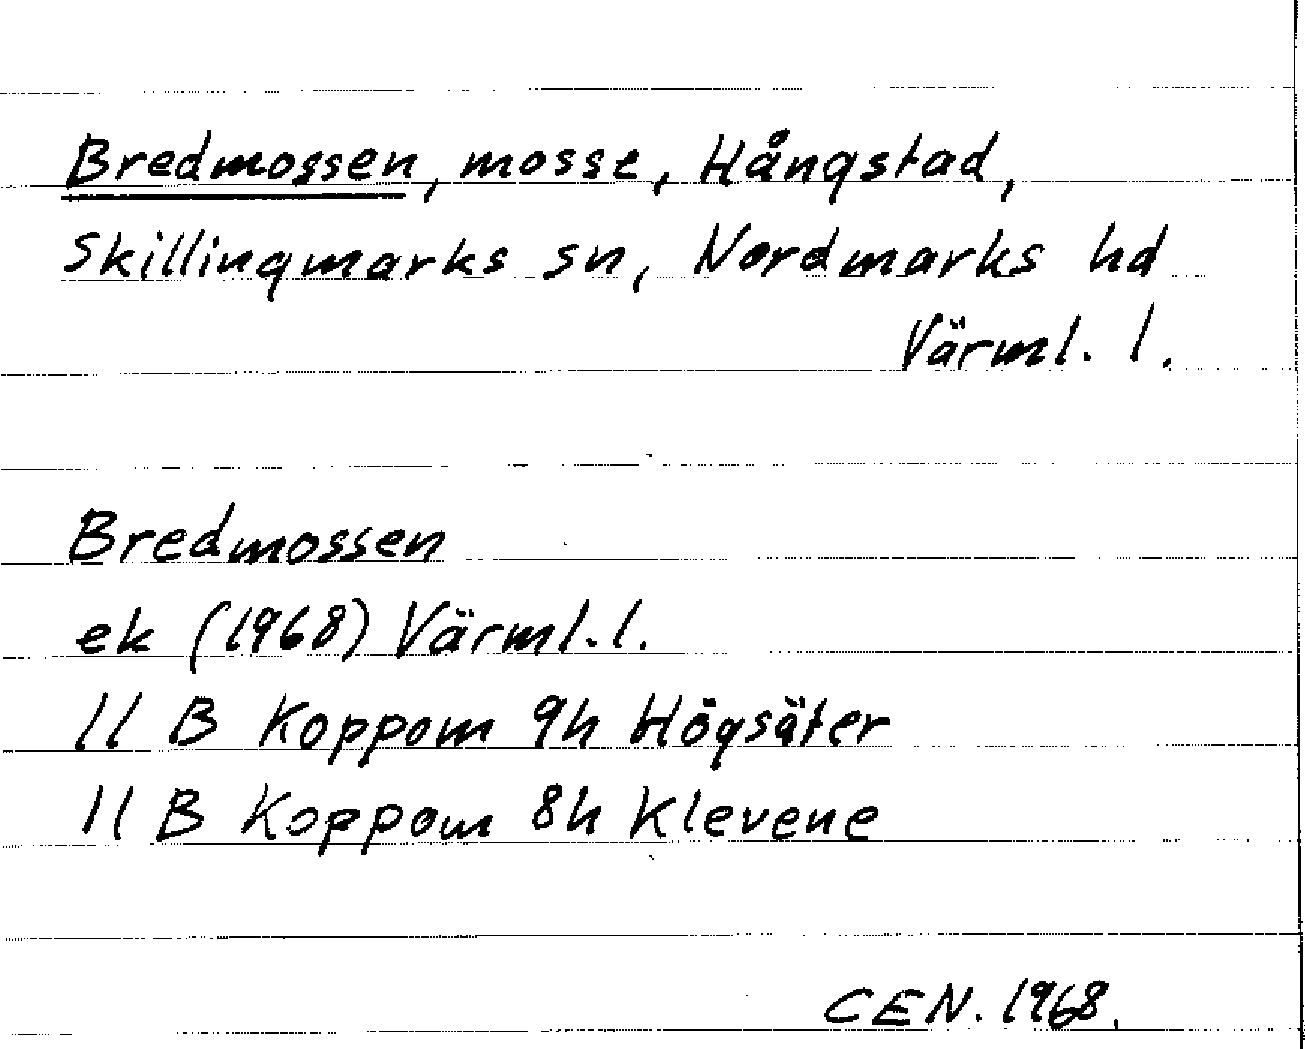 Bredmossen, mosse, Hångstad,
Skillingmarks sn, Nordmarks hd
Värml. l.
Bredmossen
ek (1968) Värml. l.
11 B Koppom 9h Högsäter
11 B Koppom 8h Klevene
CEN. 1968.